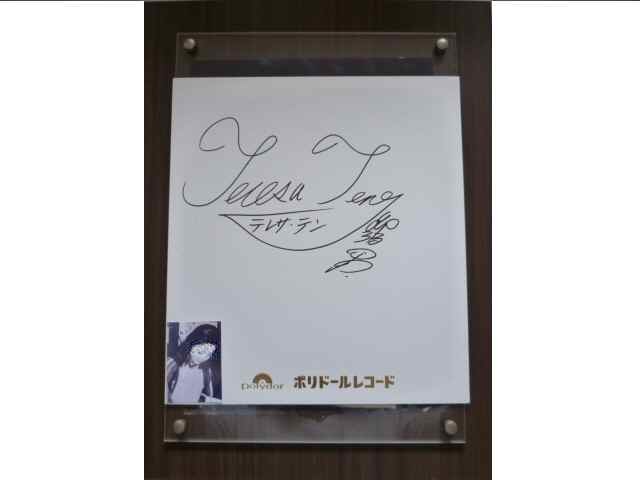 Teresa Teng
テレサ・テン
polydor ポリドールレコード